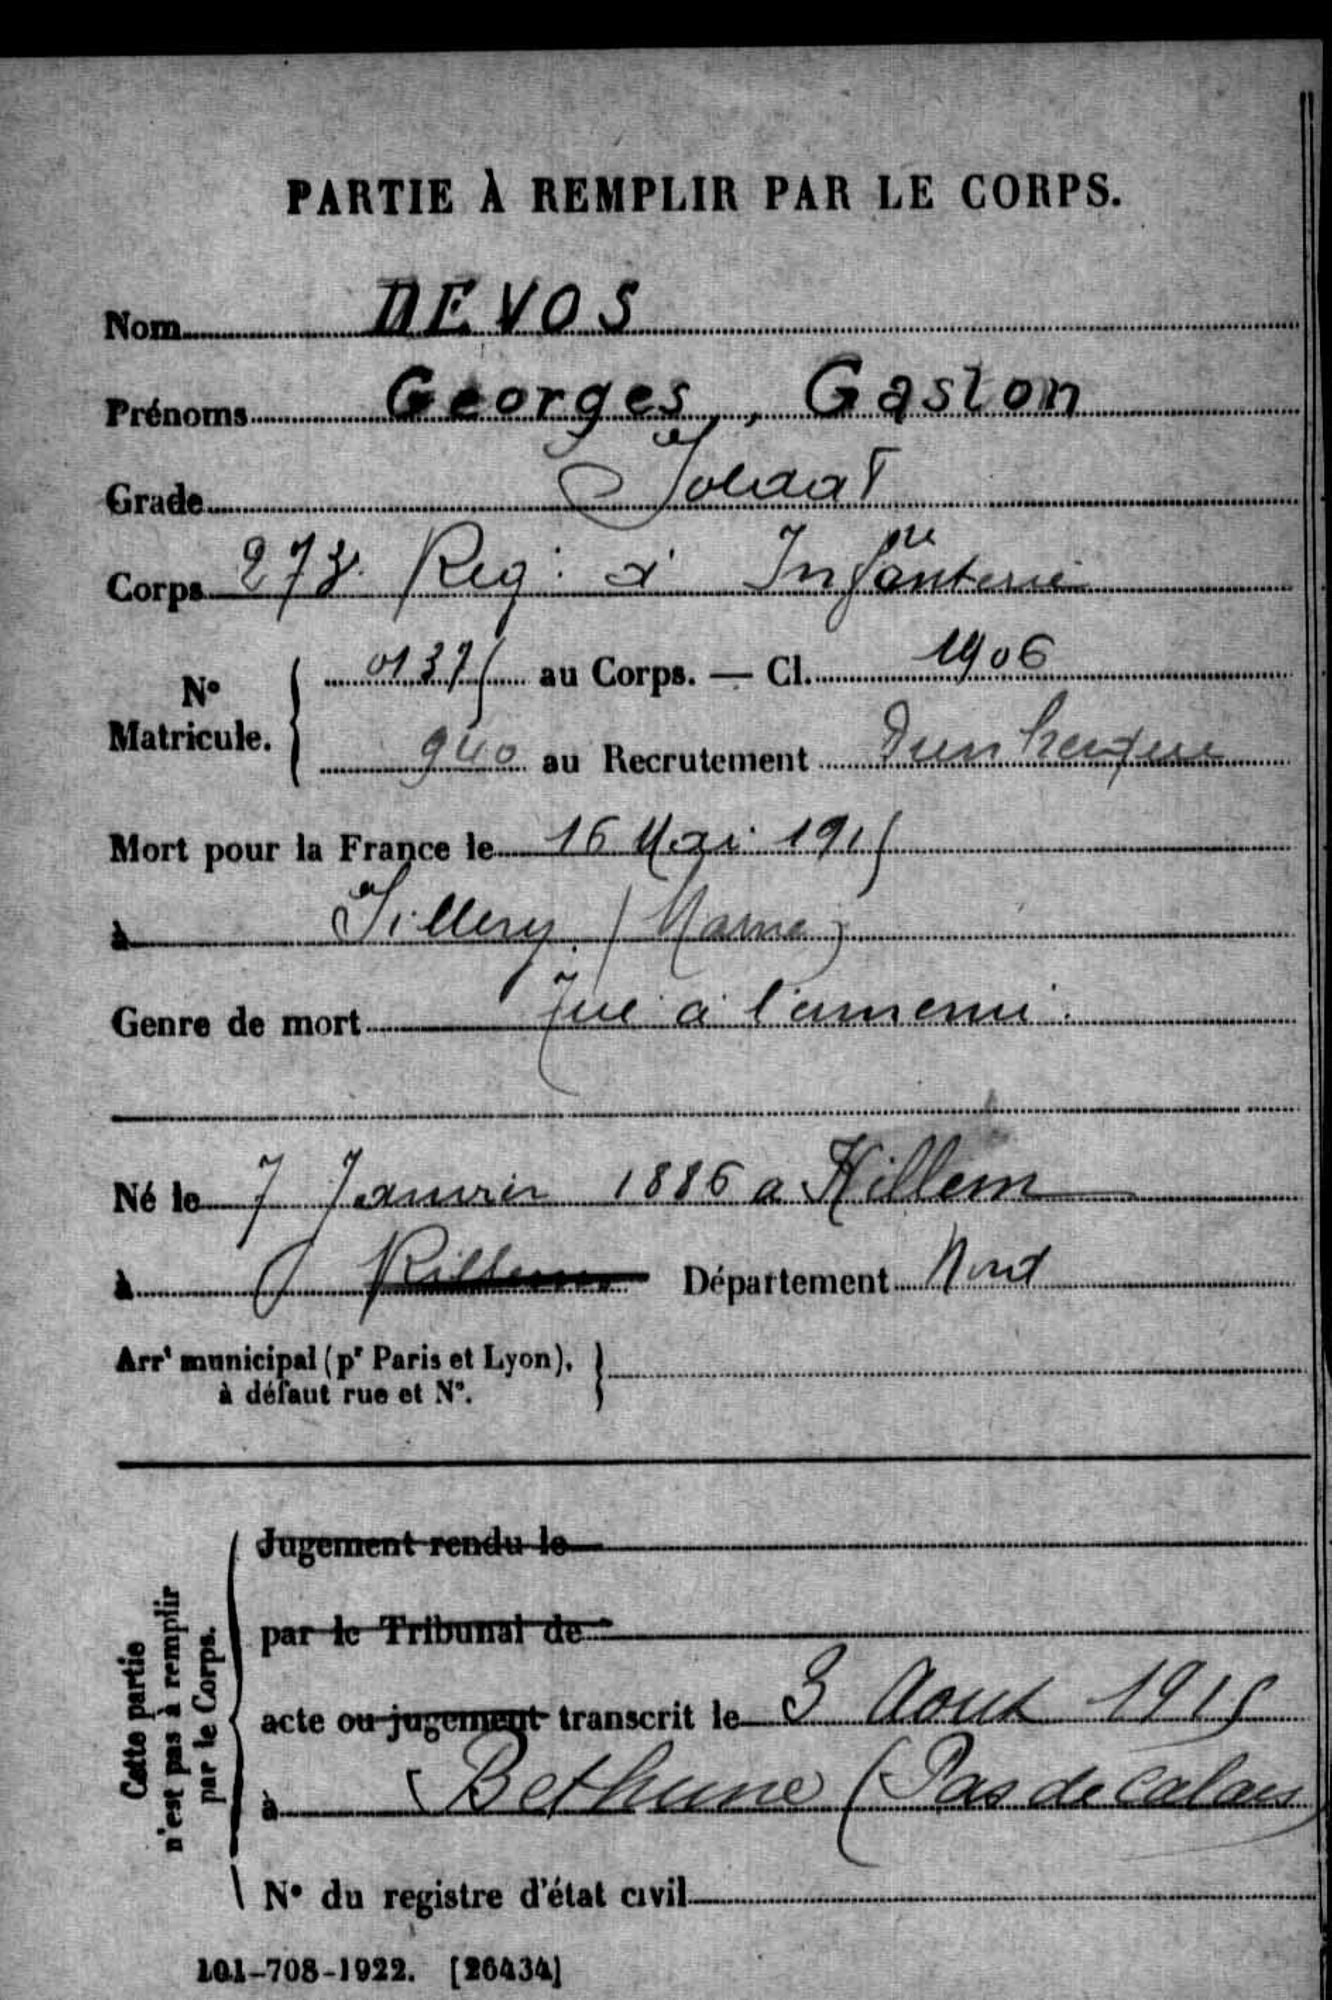 PARTIE À REMPLIR PAR LE CORPS.
Nom DEVOS
Prénoms Georges, Gaston
Grade Soldat
Corps 273 Reg. d' Infanterie re
N° Matricule. 01375 au Corps. — Cl. 1906
940 au Recrutement Dunkerque
Mort pour la France le 16 Mai 1915
à Sillery (Marne)
Genre de mort Tué à l'ennemi.
Né le 7 Janvier 1886 a Killem
à Killem Département Nord
Arrt municipal (pr Paris et Lyon),
à défaut rue et N°.
Cette partie
n'est pas à remplir
par le Corps.
Jugement rendu le
par le Tribunal de
acte ou jugement transcrit le 3 Aout 1915
à Bethune (Pas de Calais
N° du registre d'état civil
101-708-1922. [26434]